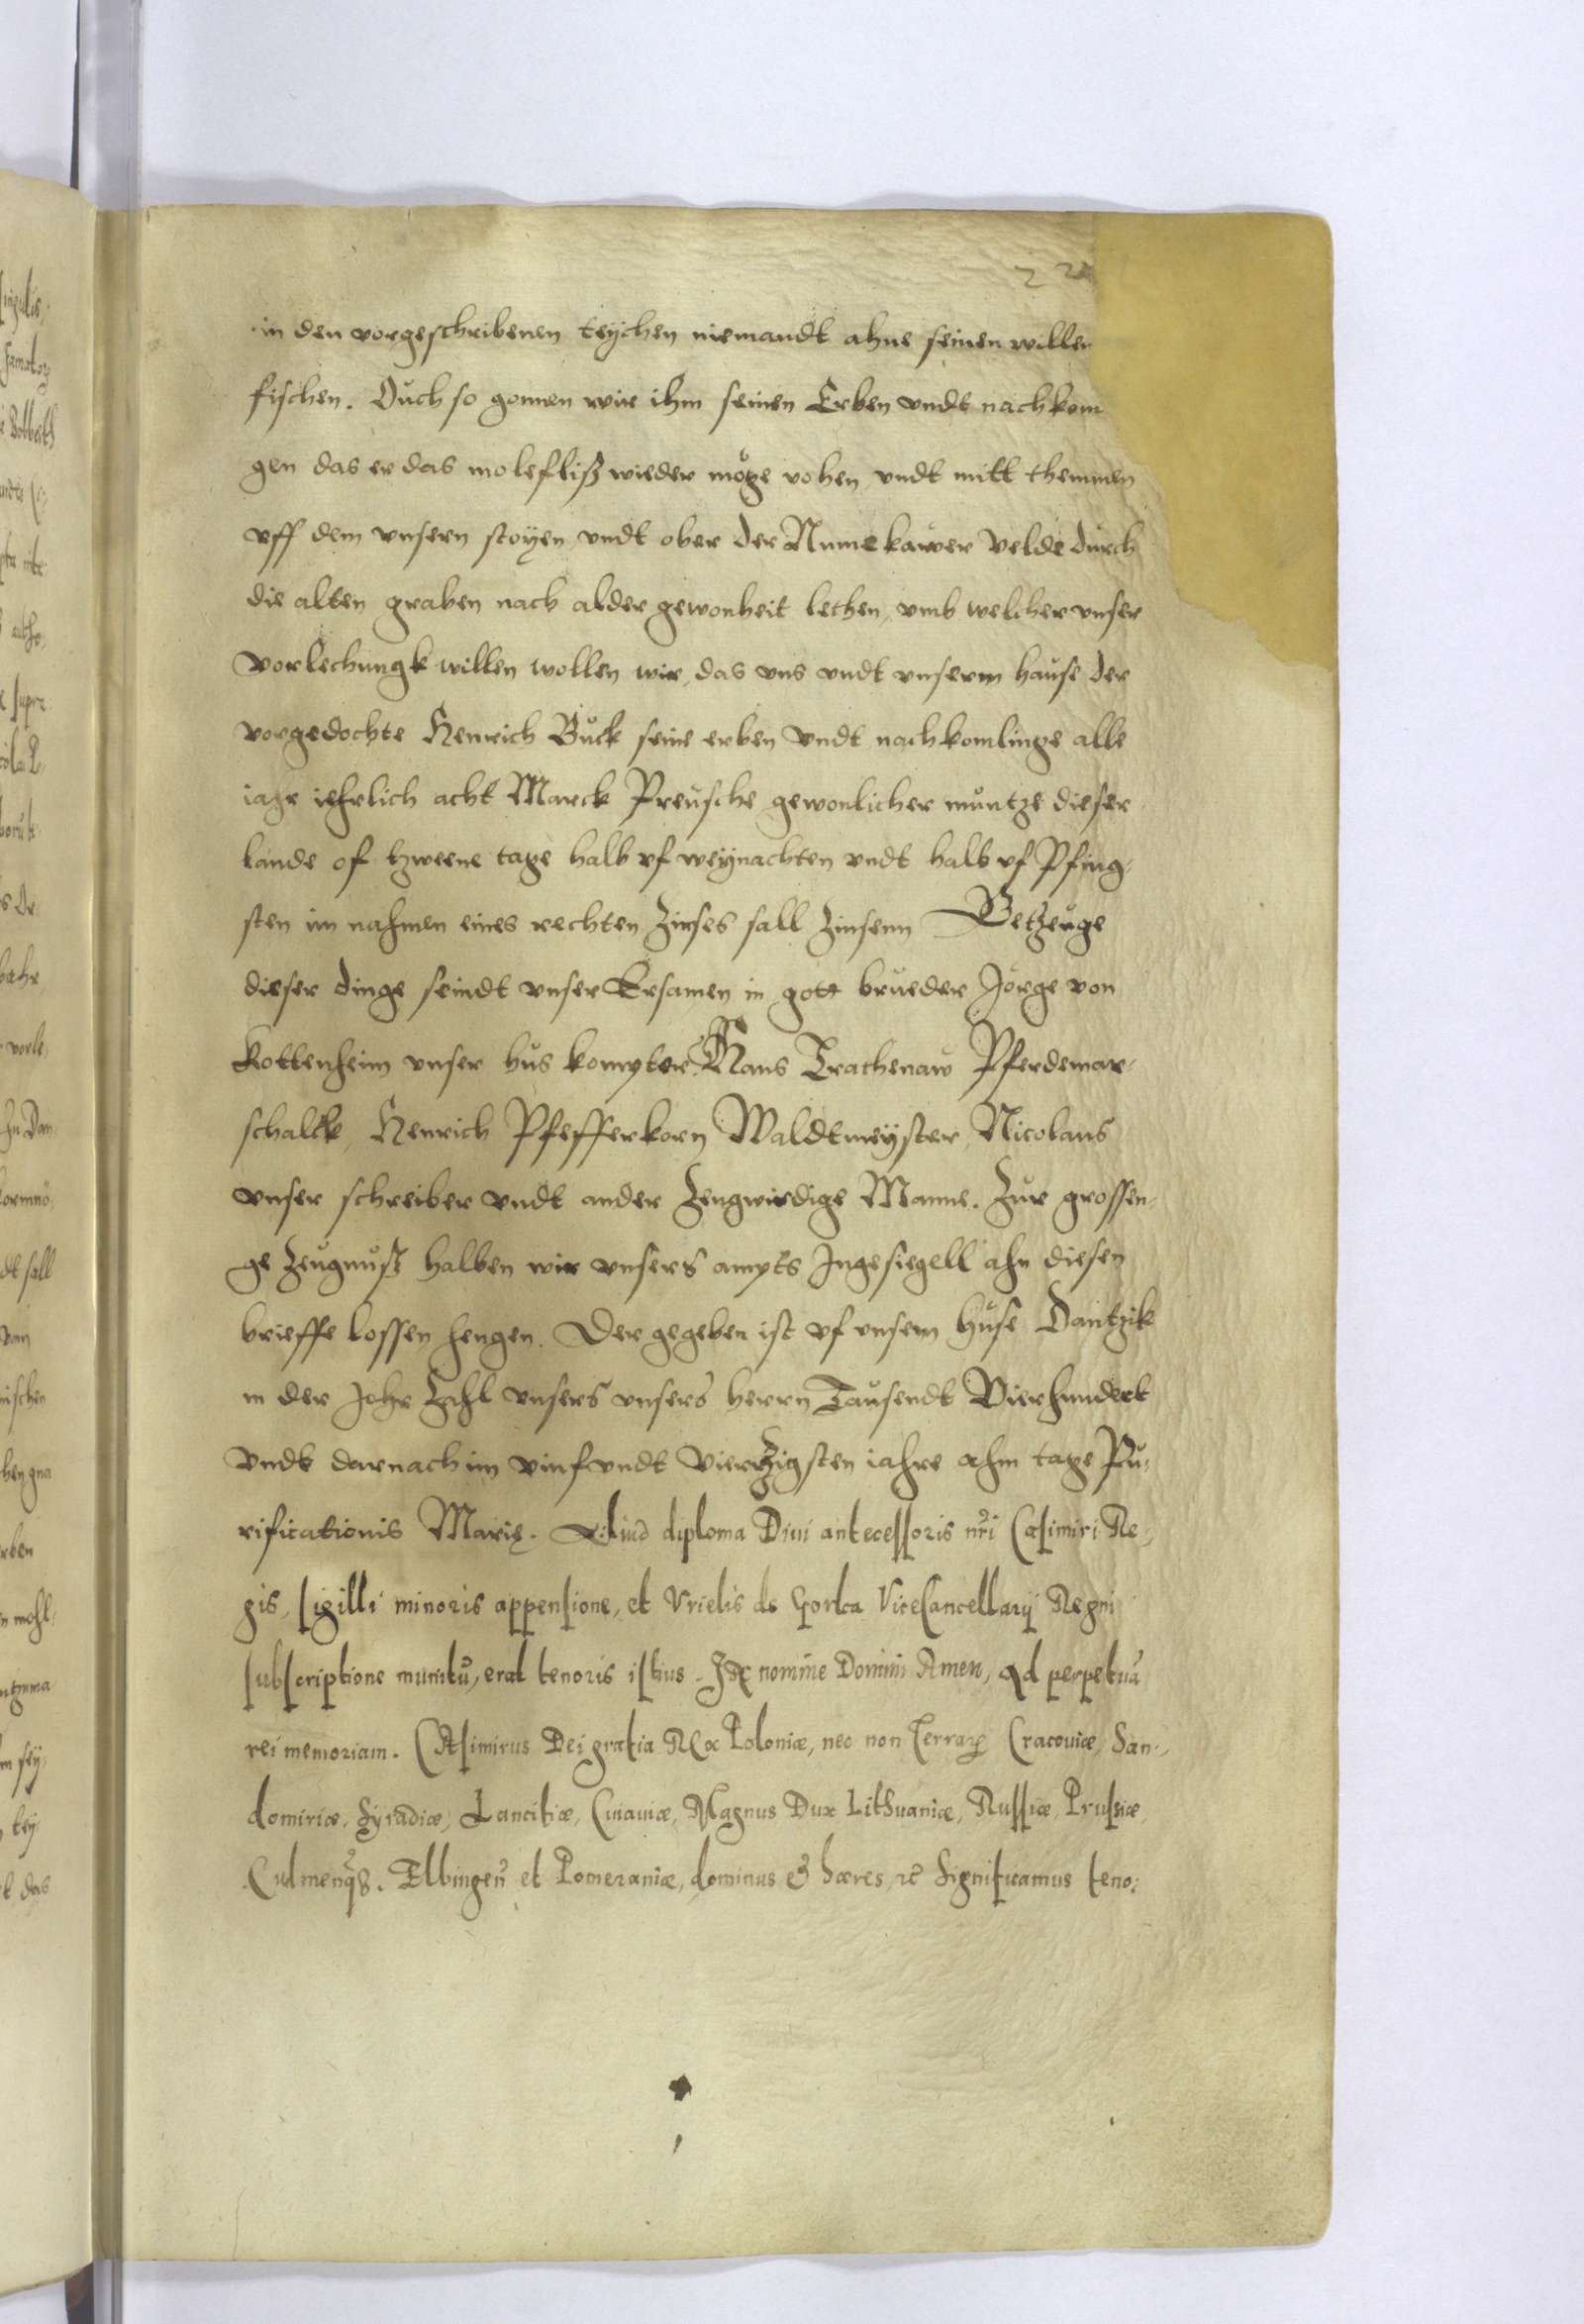 22
in den vorgeschribenen teychen niemandt ahne seinen willen
fischen. Ouch so gonnen wir ihm seinen Erben vndt nachkom
gen das er das molefliß wieder möge vohen vndt mitt themmen
vff dem vnsern stoyen vndt ober der Numekawer Velde durch
die alten graben nach alder gewonheit lethen, vmb welcher vnser
vorlechungk willen wollen wir, das vns vndt vnserm hause der
vorgedochte Henrich Buck seine erben vndt nachkomlinge alle
iahr iehrlich acht Marck Preusche gewonlicher muntze dieser
lande of tzweene tage halb vf weynachten vndt halb vf Pfing,
sten im nahmen eines rechten Zinses sall Zinsenn Getzeuge
dieser dinge seindt vnser Ersamen in gott brueder Jorge von
Kottenheim vnser hus kompter, Hans Trachenaw Pferdemar,
schalck, Henrich Pfefferkorn Waldtmeyster, Nicolaus
vnser schreiber vndt ander Zeugwirdige Manne. Zur grossen,
ge Zeugnuß halben wir vnsers ampts Ingesiegell ahn diesen
brieffe lossen hengen. Der gegeben ist vf vnsem huse Dantzik
in der Jehr Zahl vnsers vnsers herrn Tausendt Vierhundert
vndt darnach im vinf vndt Viertzigsten iahre ahm tage Pu,
rificationis Marię. Aliud diploma Diui antecessoris nr̃i Casimiri Re,
gis, sigilli minoris appensione, et Vrielis de Gorka ViceCancellarij Regni
subscriptione munitũ, erat tenoris istius. In nomine Domini Amen, Ad perpetuã
rei memoriam. CAsimirus Dei gratia REx Poloniæ, nec non Terrarꝫ Cracouiæ, San,
domiriæ, Syradiæ, Lancitiæ, Cuiauiæ, Magnus Dux Lithuaniæ, Russiæ, Prussiæ,
Culmenqʒ. Elbingeñ et Pomeraniæ, dominus & hæres, ꝛc̃ Significamus teno: